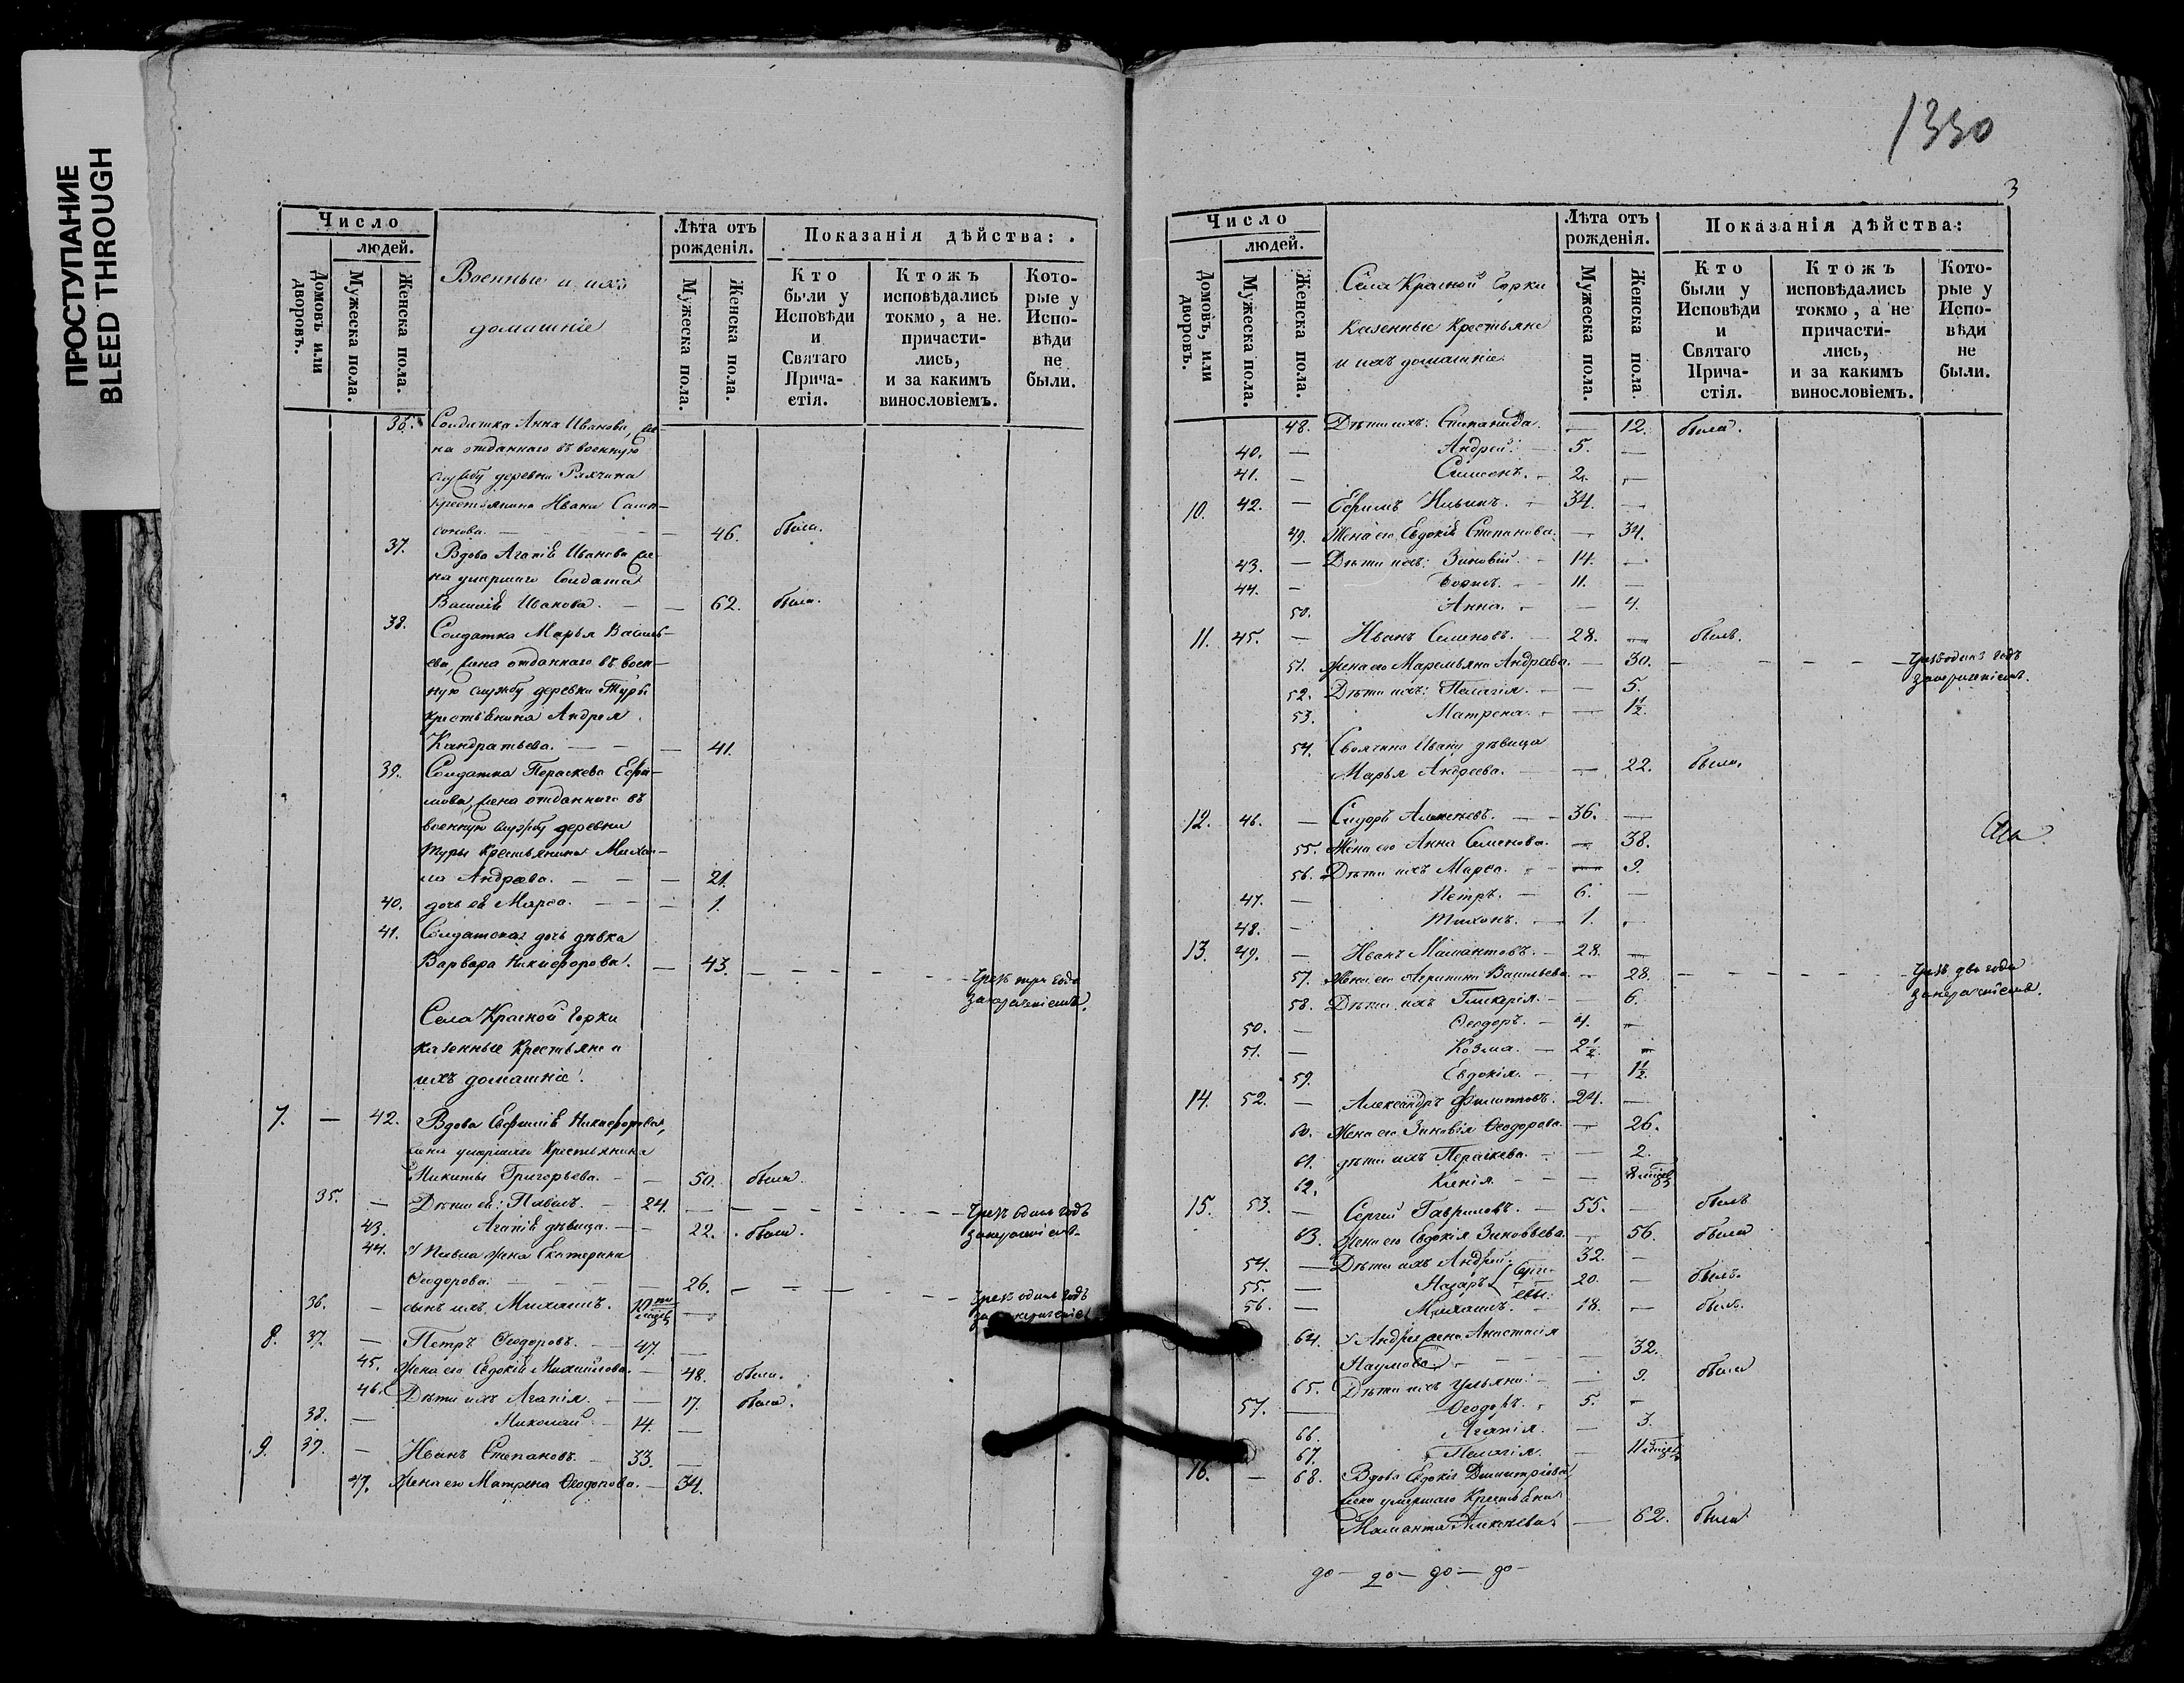 ПРОСТУПАНИЕ
BLEED THROUGH
Число
людей.
Домовъ или дворовъ.
Мужеска пола.
Женска пола.
Военные и ихъ
домашніе
Лѣта отъ рожденія.
Мужеска пола.
Женска пола.
Показанія дѣйства:
Кто были у Исповѣди и Святаго Причастія.
Ктожъ исповѣдались токмо, а не причастились, и за какимъ винословіемъ.
Которые у Исповѣди не были.
36. Солдатка Анна Иванова, же-
на отданнаго въ военную
службу деревни
крестьянина Ивана Сам-
сонова. — 46. была.
37. Вдова Агапія Иванова же-
на умершаго Солдата
Василія Иванова. — 62. была.
38. Солдатка Марья Василь-
ева, жена отданнаго въ воен-
ную службу деревни Туры
крестьянина Андрея
Кандратьева. — 41.
39. Солдатка Параскева Ефи-
мова, жена отданнаго въ
военную службу деревни
Туры крестьянина Михаи-
ла Андреева. — 21.
40. дочь ея Марѳа. — 1.
41. Солдатская дочь дѣвка
Варвара Никифорова. — 43. — чрезъ три года
за нераченіемъ.
Села Красной Горки
казенные Крестьяне и
ихъ домашніе.
7. — 42. Вдова Евфимія Никифорова,
жена умершаго Крестьянина
Никиты Григорьева. — 50. была.
35. — Дѣти ея: Павелъ. — 24. — чрезъ одинъ годъ
за нераченіемъ.
43. Агапія дѣвица. — 22. была.
44. У Павла жена Екатерина
Ѳеодорова. — 26. — чрезъ одинъ годъ
за нераченіемъ
36. — сынъ ихъ Михаилъ. 10 ти мѣсяц. —
8. 37. — Петръ Ѳеодоровъ. — 47. —
45. Жена его Евдокія Михайлова. — 48. была.
46. Дѣти ихъ Агапія. — 17. была.
38. — Николай — 14. —
9. 39. — Иванъ Степановъ. — 33. —
47. Жена его Матрена Ѳеодорова. — 34.
1330
3
Число
людей.
Домовъ, или дворовъ.
Мужеска пола.
Женска пола.
Села Красной Горки
казенные Крестьяне
и ихъ домашніе.
Лѣта отъ рожденія.
Мужеска пола.
Женска пола.
Показанія дѣйства:
Кто были у Исповѣди и Святаго Причастія.
Ктожъ исповѣдались токмо, а не причастились, и за какимъ винословіемъ.
Которые у Исповѣди не были.
48. Дѣти ихъ: Степанида. — 12. была.
40. — Андрей. — 5. —
41. — Симеонъ. — 2. —
10. 42. — Ефимъ Ильинъ. — 34. —
49. Жена его Евдокія Степанова. — 34.
43. — Дѣти ихъ: Зиновій. — 14. —
44. — — 11. —
50. Анна. — 4.
11. 45. — Иванъ Семеновъ. — 28. — былъ.
51. Жена его Маремьяна Андреева. — 30. — чрезъ одинъ годъ
за нераченіемъ.
52. Дѣти ихъ: Пелагія. — 5.
53. Матрена. — 1½.
54. Своячина Ивану дѣвица
Марья Андреева. — 22. была.
12. 46. — Сидоръ — 36. —
55. Жена его Анна Семенова. — 38.
56. Дѣти ихъ Марѳа. — 9.
47. — Петръ. — 6. —
48. — Тихонъ. — 1. —
13. 49. — Иванъ Мамантовъ. — 28. —
57. Жена его Агрипина Васильева. — 28. — чрезъ два года
за нераченіемъ.
58. Дѣти ихъ Гликерія. — 6.
50. — Ѳеодоръ. — 4. —
51. — Козма. — 2½. —
59. Евдокія. — 1½.
14. 52. — Александръ Филипповъ. 24. —
60. Жена его Зиновія Ѳеодорова. — 26.
61. дѣти ихъ Параскева. — 2.
62. Ксенія. — 8 мѣсяц.
15. 53. — Сергей Гавриловъ. — 55. — былъ
63. Жена его Евдокія Зиновьева. — 56. была
54. — Дѣти ихъ Андрей — 32. —
55. — Назаръ Серге- — 20. — былъ.
евы.
56. — Михаилъ. — 18. — былъ.
64. У Андрея жена Анастасія
Наумова. — 32.
65. Дѣти ихъ Ульяна. — 9. была
57. — Ѳеодоръ. — 5. —
66. Агапія. — 3.
67. Пелагія. — 11 мѣсяц.
16. — 68. Вдова Евдокія Димитріева
жена умершаго Крестьянина
Маманта — 62. была
до — до — до — до —